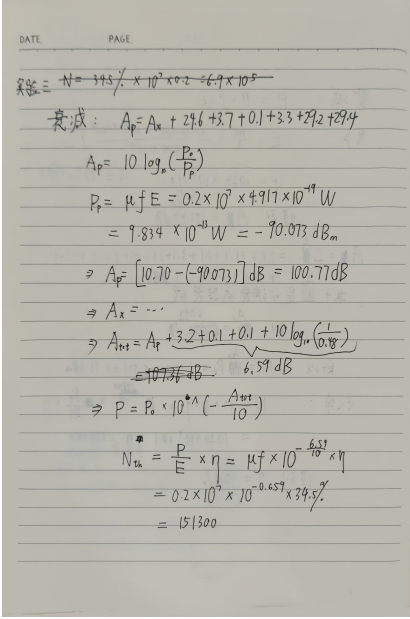 DATE PAGE
实验三 N = 34.5% × 10⁷ × 0.2 = 6.9 × 10⁵
衰减: Ap = Ax + 24.6 + 3.7 + 0.1 + 3.3 + 29.2 + 29.4
Ap = 10 log₁₀ (P₀/Pp)
Pp = μfE = 0.2 × 10⁷ × 4.917 × 10⁻¹⁹ W
= 9.834 × 10⁻¹³ W = -90.073 dBm
⇒ Ap = [10.70 - (-90.073)] dB = 100.77 dB
⇒ Ax = ...
⇒ Atot = Ap + 3.2 + 0.1 + 0.1 + 10 log₁₀ (1/0.48)
= 107.36 dB 6.59 dB
⇒ P = P₀ × 10 ^ (- Atot/10)
Nth = P/E × η = μf × 10^(-6.59/10) × η
= 0.2 × 10⁷ × 10^(-0.659) × 34.5%
= 151300